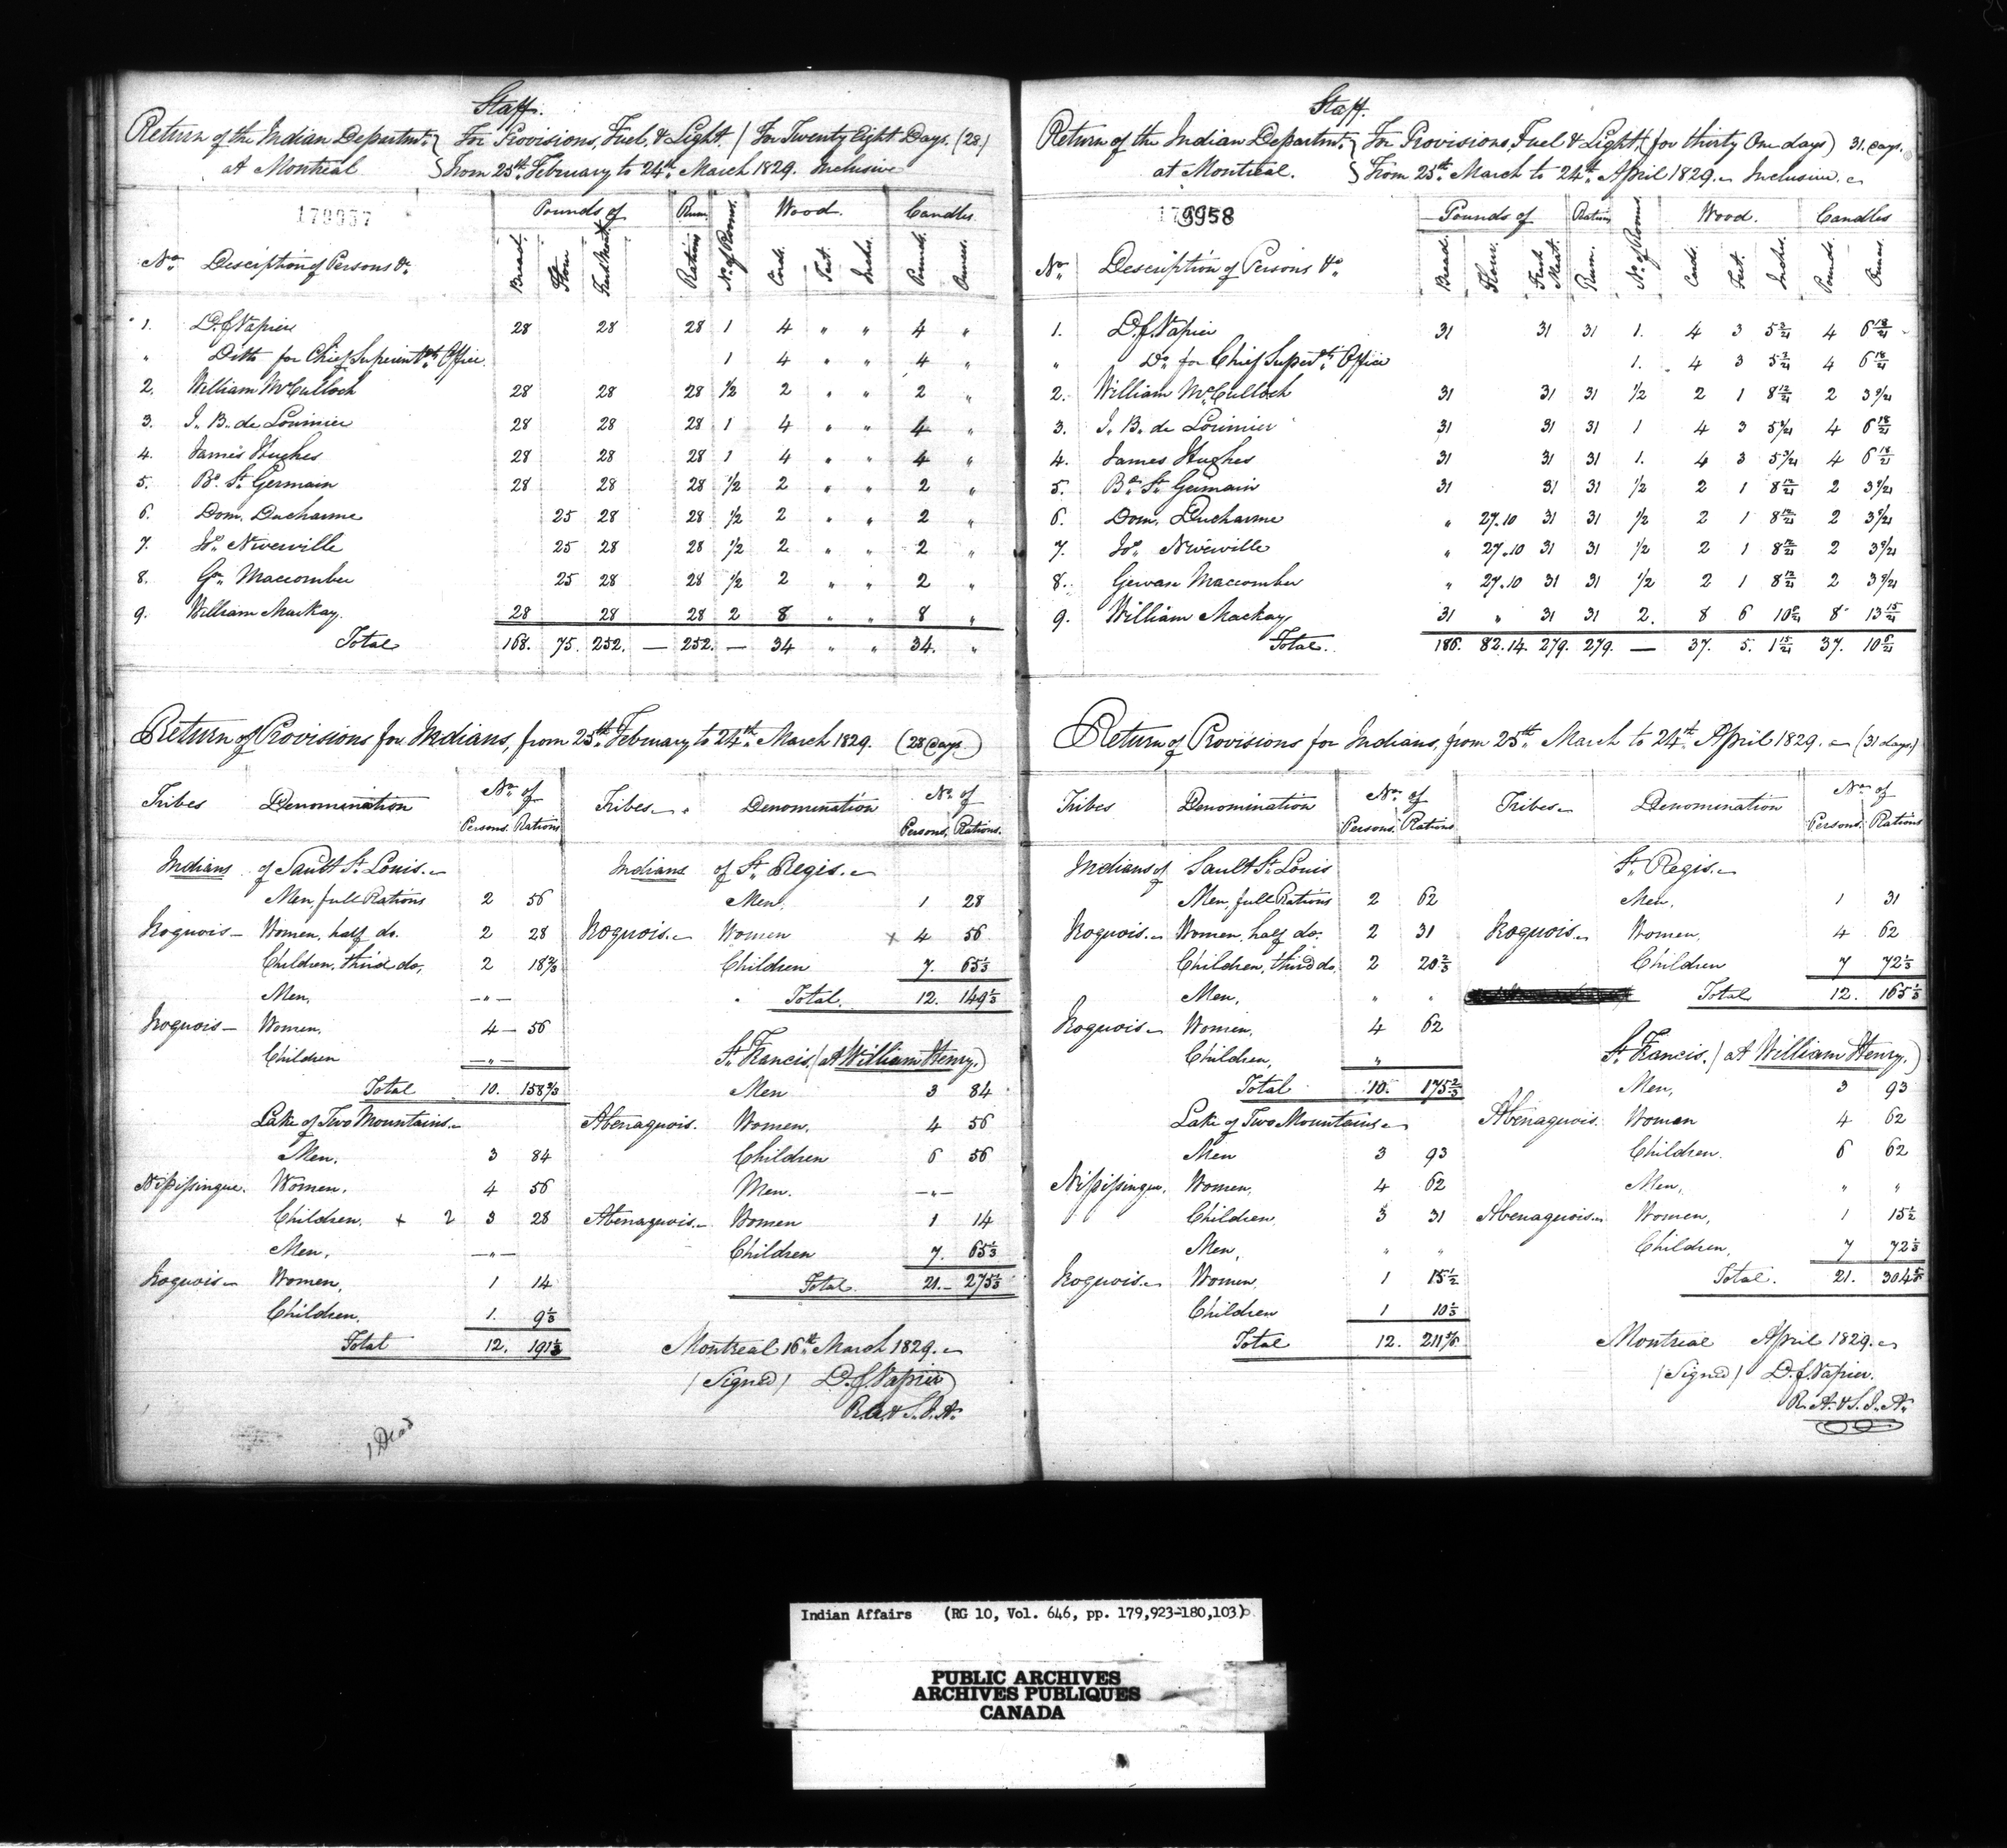 Staff.
Return of the Indian Departmt. } For Provisions, Fuel, & Light. / For Twenty Eight Days. (28)
at Montreal } From 25th. February to 24th. March 1829. Inclusive
179957
Pounds of Rum Wood. Candles.
No. Desciption of Persons &c. Bread. Flour Rations No. of Rooms. Cords. Feet. Inches. Pounds. Ounces.
1. D. J. Napier 28 28 28 1 4 " " 4 "
" Ditto for Chief Superintdts. Office. 1 4 " " 4 "
2. William McCulloch 28 28 28 1/2 2 " " 2 "
3. J. B. de Lorimier 28 28 28 1 4 " " 4 "
4. James Hughes 28 28 28 1 4 " " 4 "
5. Be. St. Germain 28 28 28 1/2 2 " " 2 "
6. Dom. Ducharme 25 28 28 1/2 2 " " 2 "
7. Jos. Niverville 25 28 28 1/2 2 " " 2 "
8. Ger. Maccomber 25 28 28 1/2 2 " " 2 "
9. William MacKay. 28 28 28 2 8 " " 8 "
Total 168. 75. 252. — 252. — 34 " " 34. "
Return of Provisions for Indians, from 25th. February to 24th. March 1829. (28 Days.)
Tribes Denomination No. of Persons. Rations
Indians of Sault St. Louis.
Men, full Rations 2 56
Iroquois — Women, half do. 2 28
Children, third do. 2 18 2/3
Men, — " —
Iroquois — Women, 4 — 56
Children — " —
Total 10. 158 2/3
Lake of Two Mountains.
Men. 3 84
Nipissingue. Women. 4 56
Children. + 2 3 28
Men. — " —
Iroquois Women, 1 14
Children, 1. 9 1/3
Total 12. 191 1/3
1 Dead
Tribes Denomination No. of Persons. Rations.
Indians of St. Regis.
Men. 1 28
Iroquois. Women x 4 56
Children 7. 65 1/3
Total. 12. 149 1/3
St. Francis. (at William Henry.)
Men 3 84
Abenaquois. Women. 4 56
Children 6 56
Men. — " —
Abenaquois. Women 1 14
Children 7. 65 1/3
Total. 21. — 275 1/3
Montreal 16th. March 1829.
(Signed) D. J. Napier
R.A. & S.I.A.
Staff.
Return of the Indian Departmt. } For Provisions, Fuel & Light, (for thirty One days) 31. Days.
at Montreal. } From 25th. March to 24th. April 1829. Inclusive.
9958
Pounds of Rations Wood. Candles
No. Description of Persons &c. Bread. Flour. Fresh Meat. Rum. No. of Rooms. Cords. Feet. Inches. Pounds. Ounces.
1. D. J. Napier 31 31 31 1. 4 3 5 3/21 4 6 18/21
" Do. for Chief Superdts. Office 1. 4 3 5 3/21 4 6 18/21
2. William McCulloch 31 31 31 1/2 2 1 8 12/21 2 3 9/21
3. J. B. de Lorimier 31 31 31 1 4 3 5 3/21 4 6 18/21
4. James Hughes 31 31 31 1. 4 3 5 3/21 4 6 18/21
5. Be. St. Germain 31 31 31 1/2 2 1 8 12/21 2 3 9/21
6. Dom. Ducharme " 27.10 31 31 1/2 2 1 8 12/21 2 3 9/21
7. Jos. Niverville " 27.10 31 31 1/2 2 1 8 12/21 2 3 9/21
8. Gervase Maccomber " 27.10 31 31 1/2 2 1 8 12/21 2 3 9/21
9. William Mackay 31 " 31 31 2. 8 6 10 6/21 8 13 15/21
Total. 186. 82.14. 279. 279. — 37. 5. 1 15/21 37. 10 6/21
Return of Provisions for Indians, from 25th. March to 24th. April 1829. (31 days.)
Tribes Denomination No. of Persons. Rations
Indians of Sault St. Louis
Men, full Rations 2 62
Iroquois. Women, half do. 2 31
Children, third do. 2 20 2/3
Men, " "
Iroquois. Women, 4 62
Children, "
Total 10. 175 2/3
Lake of Two Mountains
Men 3 93
Nipissingue. Women, 4 62
Children. 3 31
Men, " "
Iroquois. Women, 1 15 1/2
Children 1 10 1/3
Total 12. 211 5/6
Tribes Denomination No. of Persons. Rations
St. Regis.
Men. 1 31
Iroquois. Women, 4 62
Children 7 72 1/3
Total 12. 165 1/3
St. Francis. (at William Henry.)
Men, 3 93
Abenaquois. Women 4 62
Children. 6 62
Men, " "
Abenaquois. Women, 1 15 1/2
Children, 7 72 1/3
Total. 21. 304 5/6
Montreal April 1829.
(Signed) D. J. Napier.
R. A. & S. I. A.
Indian Affairs (RG 10, Vol. 646, pp. 179,923-180,103)
PUBLIC ARCHIVES
ARCHIVES PUBLIQUES
CANADA